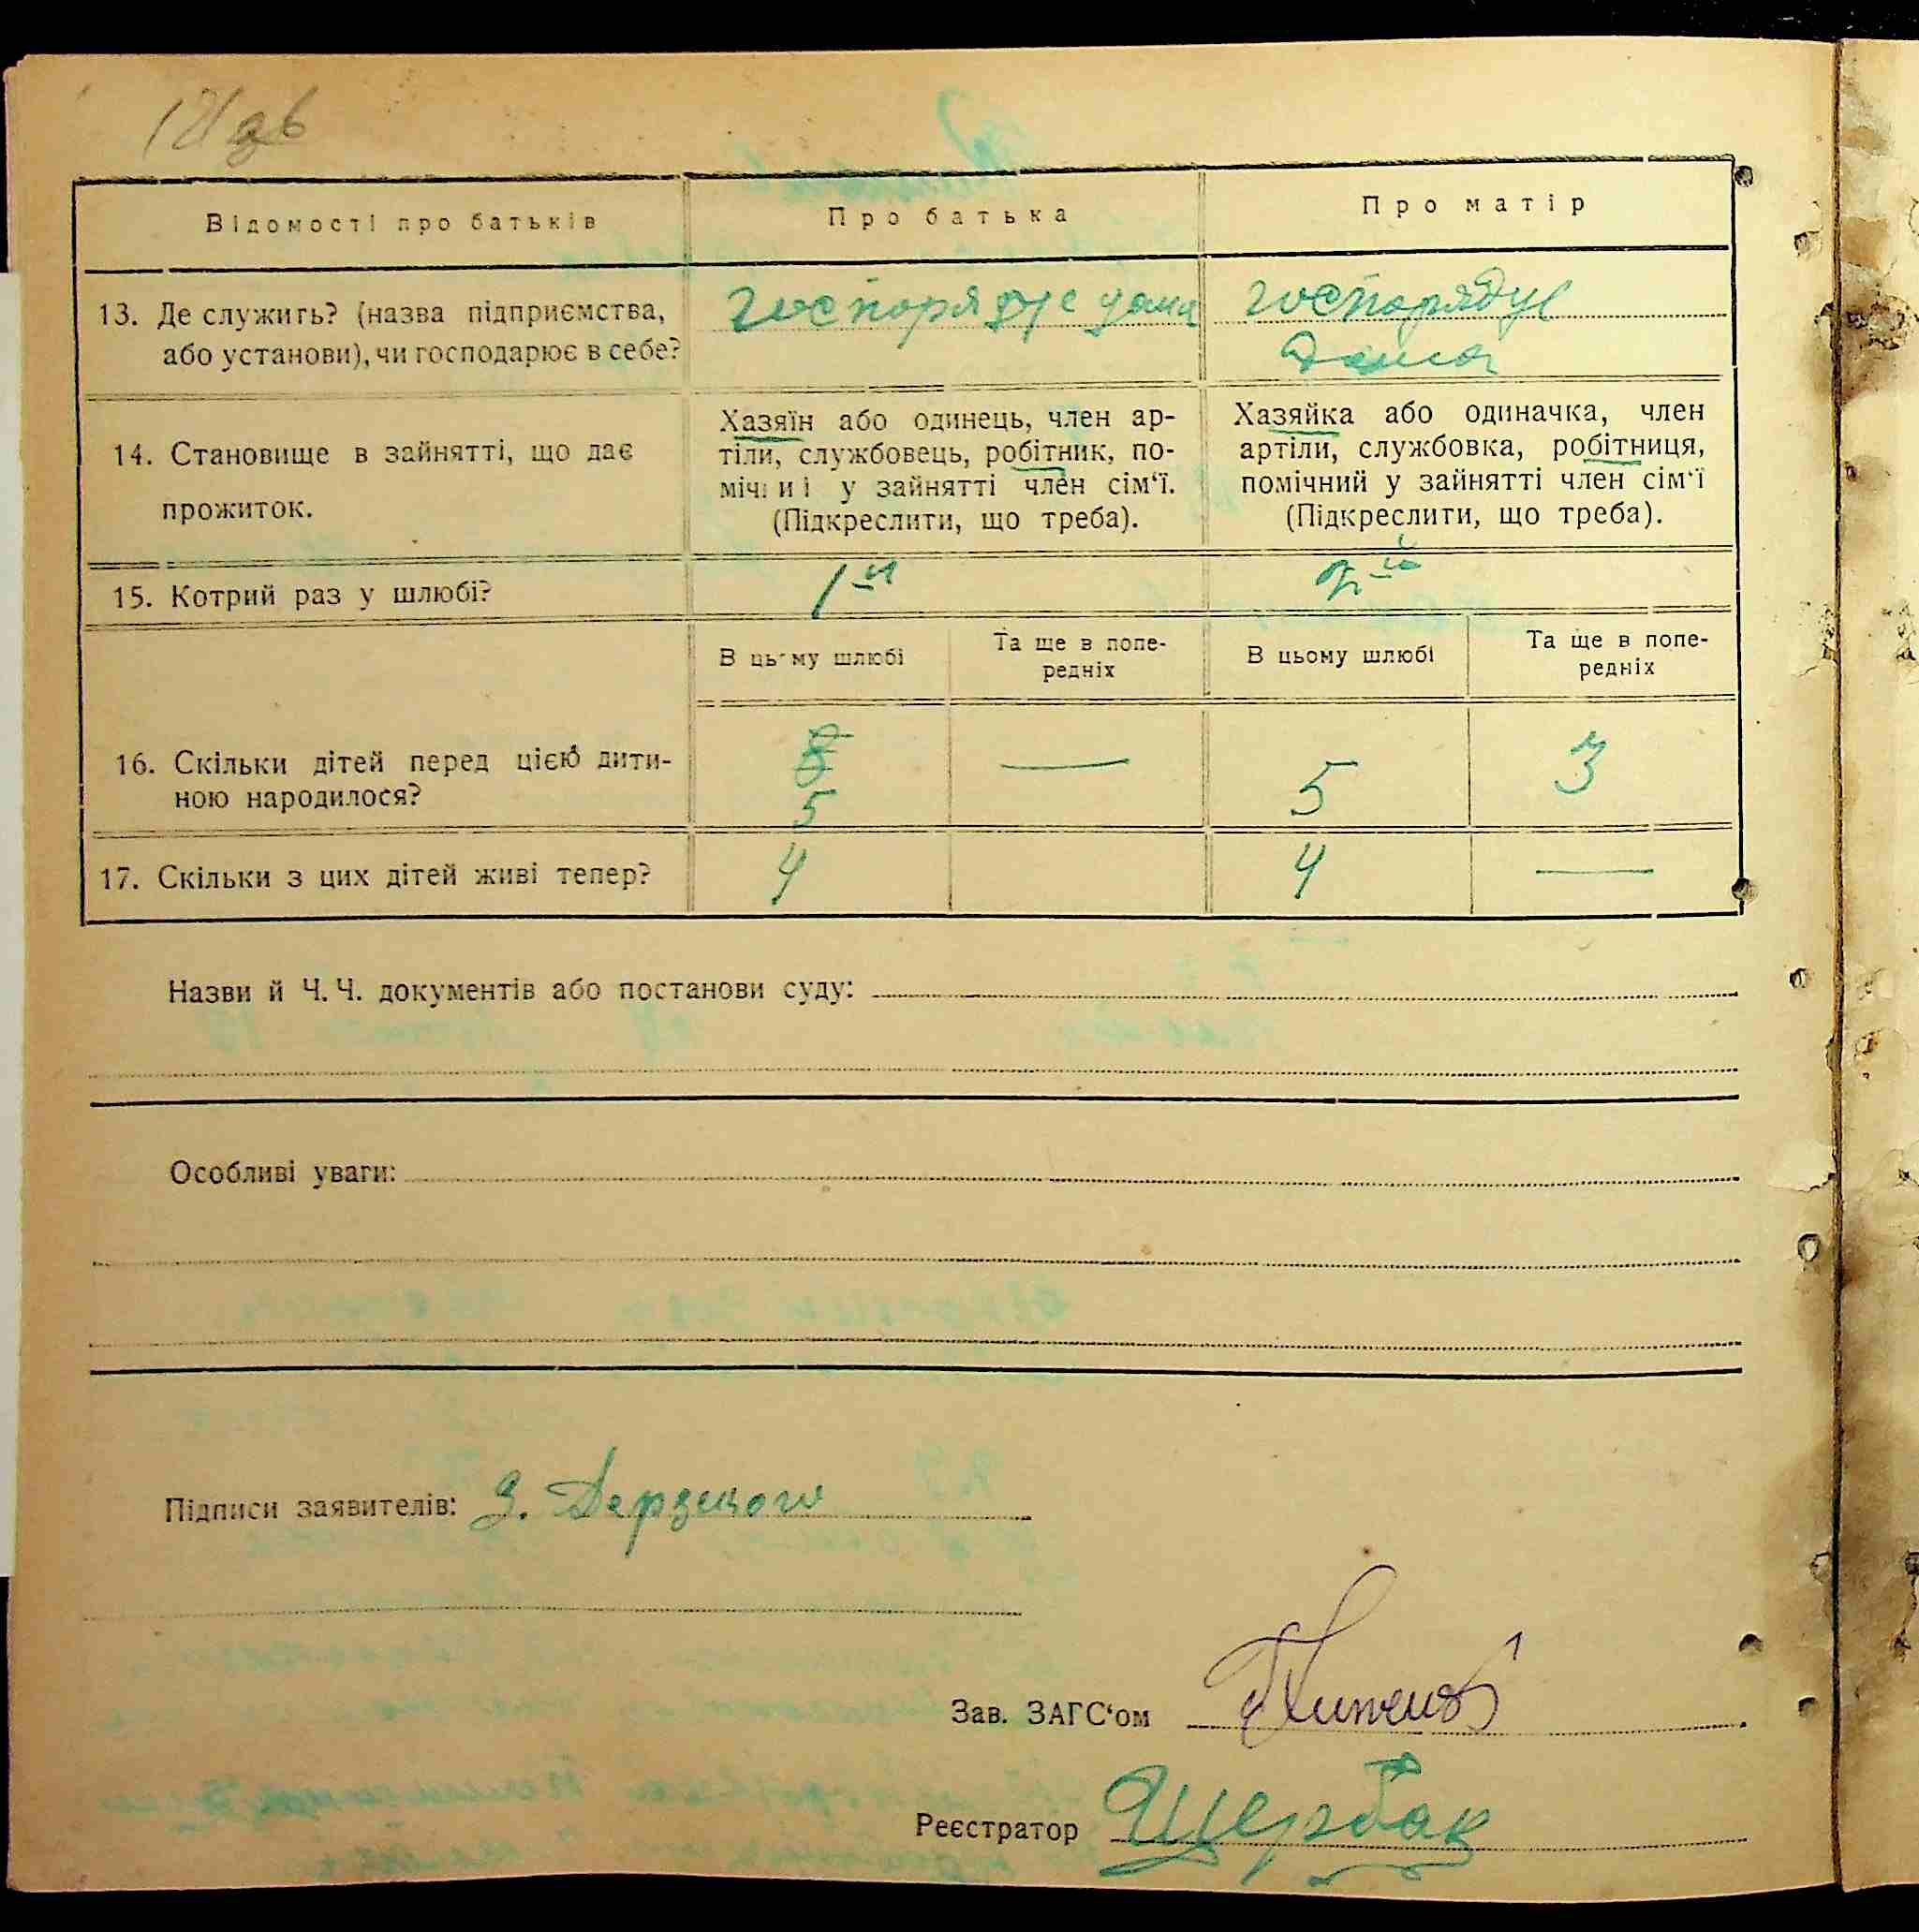 Відомості про батьків
Про батька
Про матір
13. Де служить? (назва підприємства, або установи), чи господарює в себе?
господарює дома
господарює
дома
14. Становище в зайнятті, що дає
прожиток.
Хазяїн або одинець, член ар-
тіли, службовець, робітник, по-
міч и і у зайнятті член сім‘ї.
(Підкреслити, що треба).
Хазяйка або одиначка, член
артіли, службовка, робітниця,
помічний у зайнятті член сім‘ї
(Підкреслити, що треба).
15. Котрий раз у шлюбі?
1-й
В цьму шлюбі
Та ще в попе-
редніх
В цьому шлюбі
Та ще в попе-
редніх
16. Скільки дітей перед цією дити-
ною народилося?
5
—
5
3
17. Скільки з цих дітей живі тепер?
4
4
—
Назви й Ч. Ч. документів або постанови суду:
Особливі уваги:
Підписи заявителів: З.
Зав. ЗАГС‘ом
Реєстратор Щербак